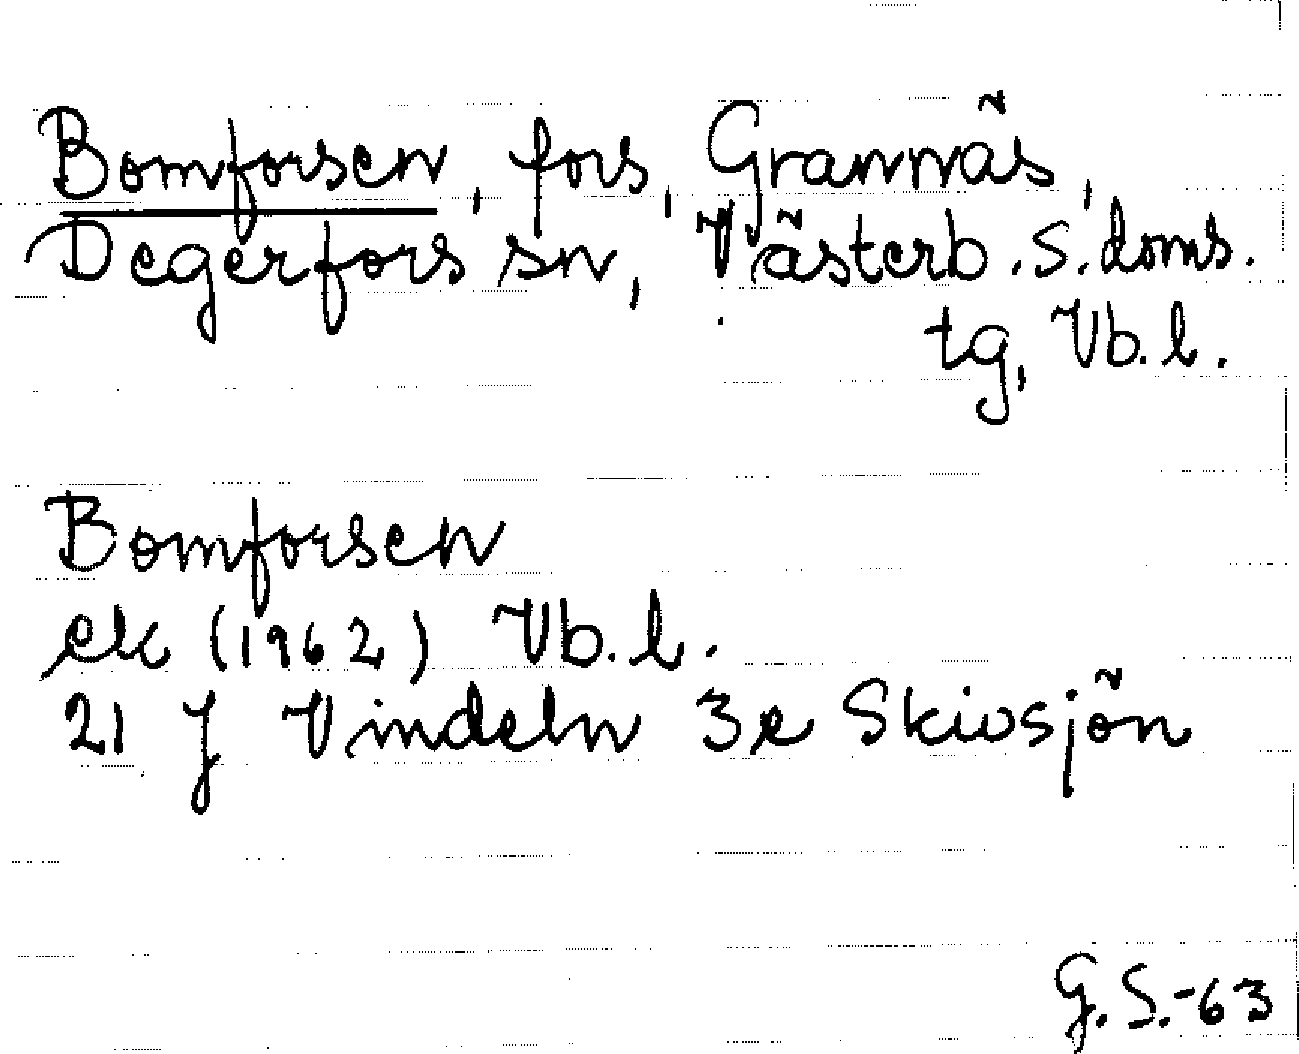 Bomforsen, fors, Grannäs,
Degerfors sn, Västerb. s. doms.
tg, Vb. l.
Bomforsen
ek (1962) Vb. l.
21 J Vindeln 3e Skivsjön
G. S.-63